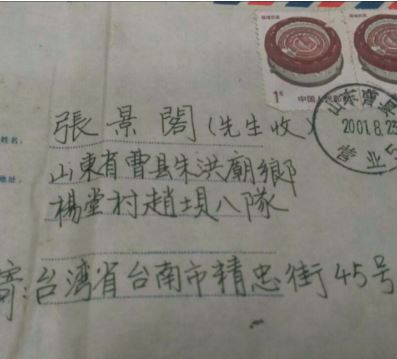 1分
中国人民邮政
山东曹县
2001.8.23
姓名
張景閣(先生收)
地址
山東省曹县朱洪廟鄉
楊堂村趙垻八隊
寄:台湾省台南市精忠街45号